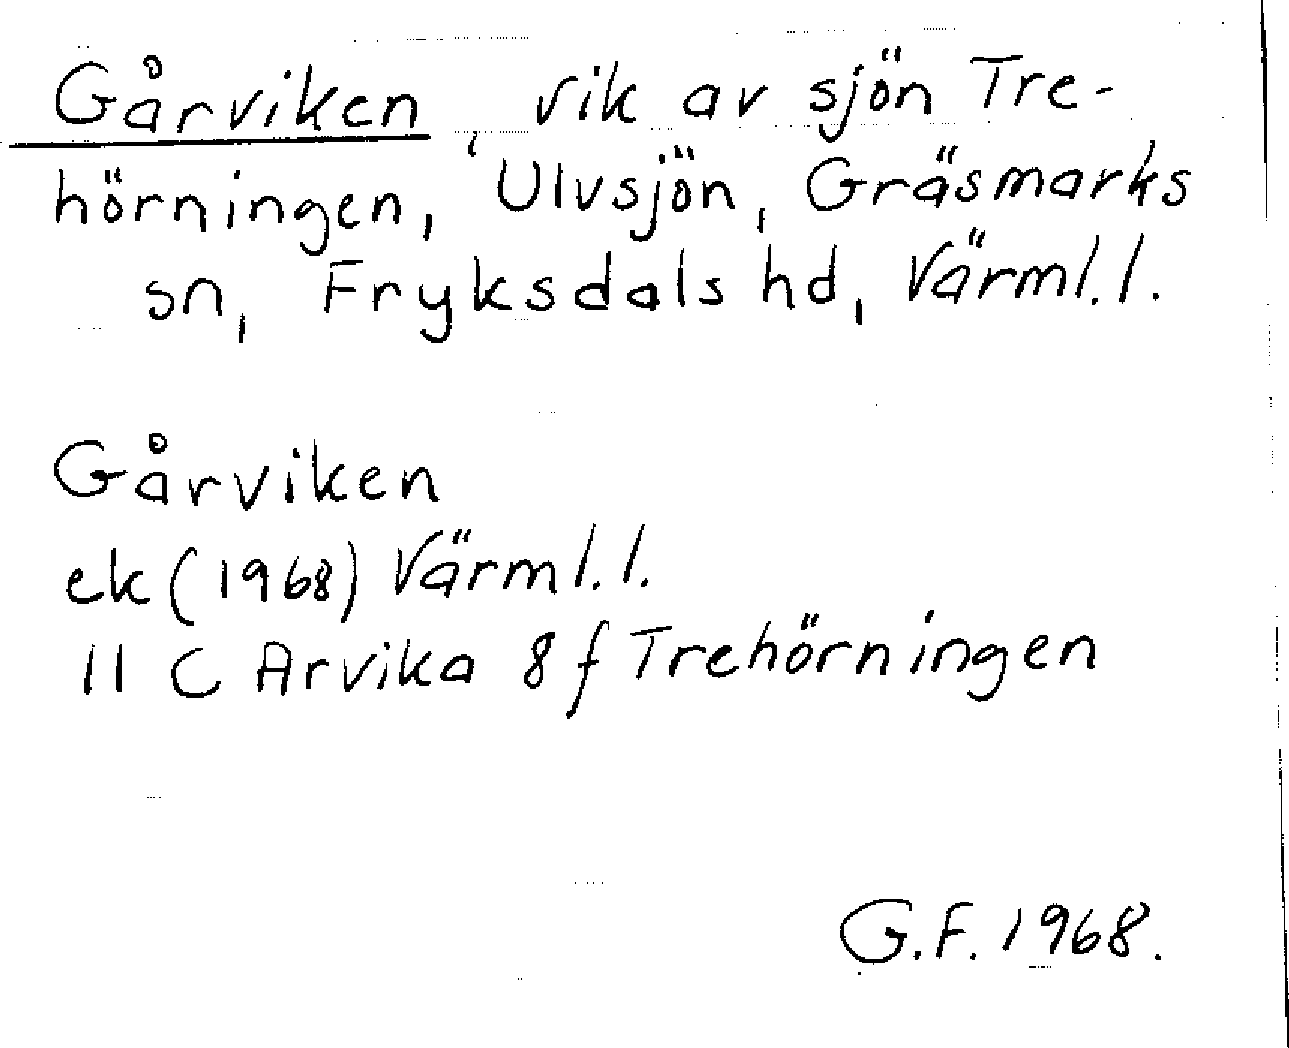 Gårviken, vik av sjön Tre-
hörningen, Ulvsjön, Gräsmarks
sn, Fryksdals hd, Värml. l.
Gårviken
ek (1968) Värml. l.
11 C Arvika 8 f Trehörningen
G.F. 1968.